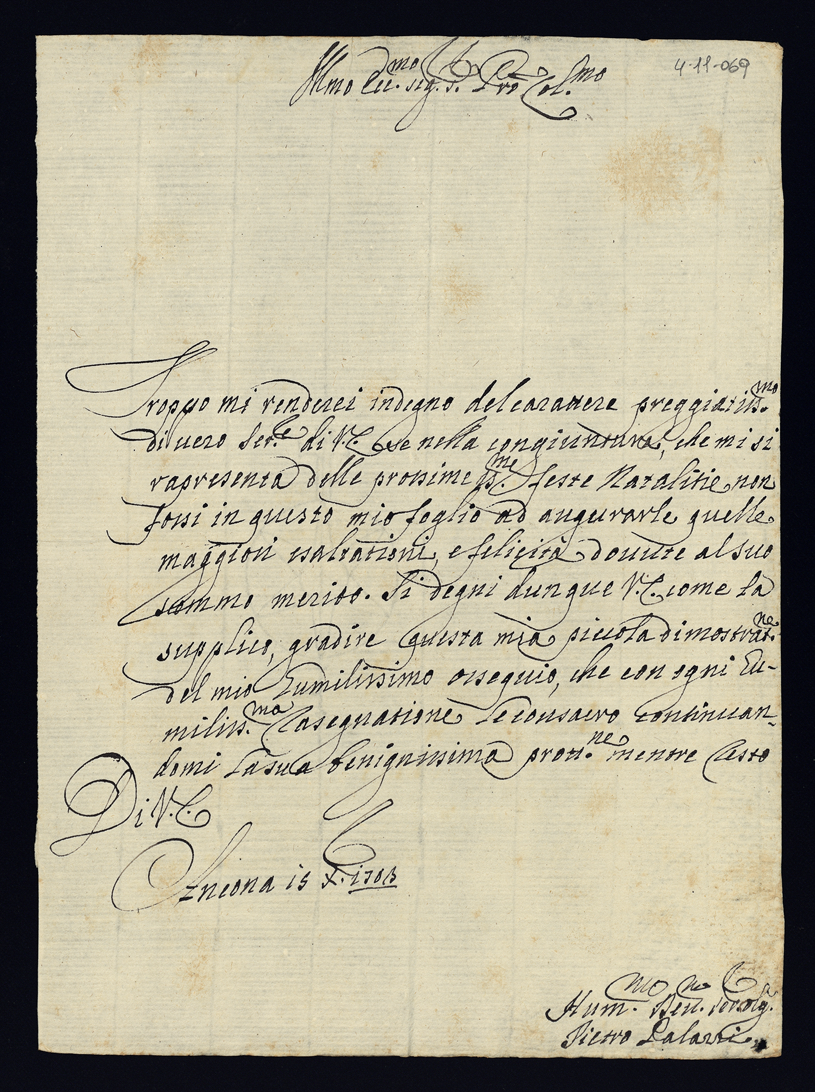 4-11-069
Ill.mo Ecc.mo Sig.r S.r Pro͠n Col.mo
Troppo mi renderei indegno del carattere preggiatiss.mo
di uero Ser.e di V.E. se nella congiuntura, che mi si
rapresenta delle prossime S.me feste Natalitie non
fossi in questo mio foglio ad augurarle quelle
maggiori esaltationi, e felicità douute al suo
sommo merito. Si degni dunque V.E. come la
supplico, gradire questa mia piccola dimostrat.ne
del mio humilissimo ossequio, che con ogni hu-
miliss.ma rasegnatione le consacro continuan-
domi la sua benignissima prott.ne mentre resto
Di V.E.
Ancona 15 X. 1703
Hum.mo Deu.mo Ser. oblg.
Pietro Palazzi